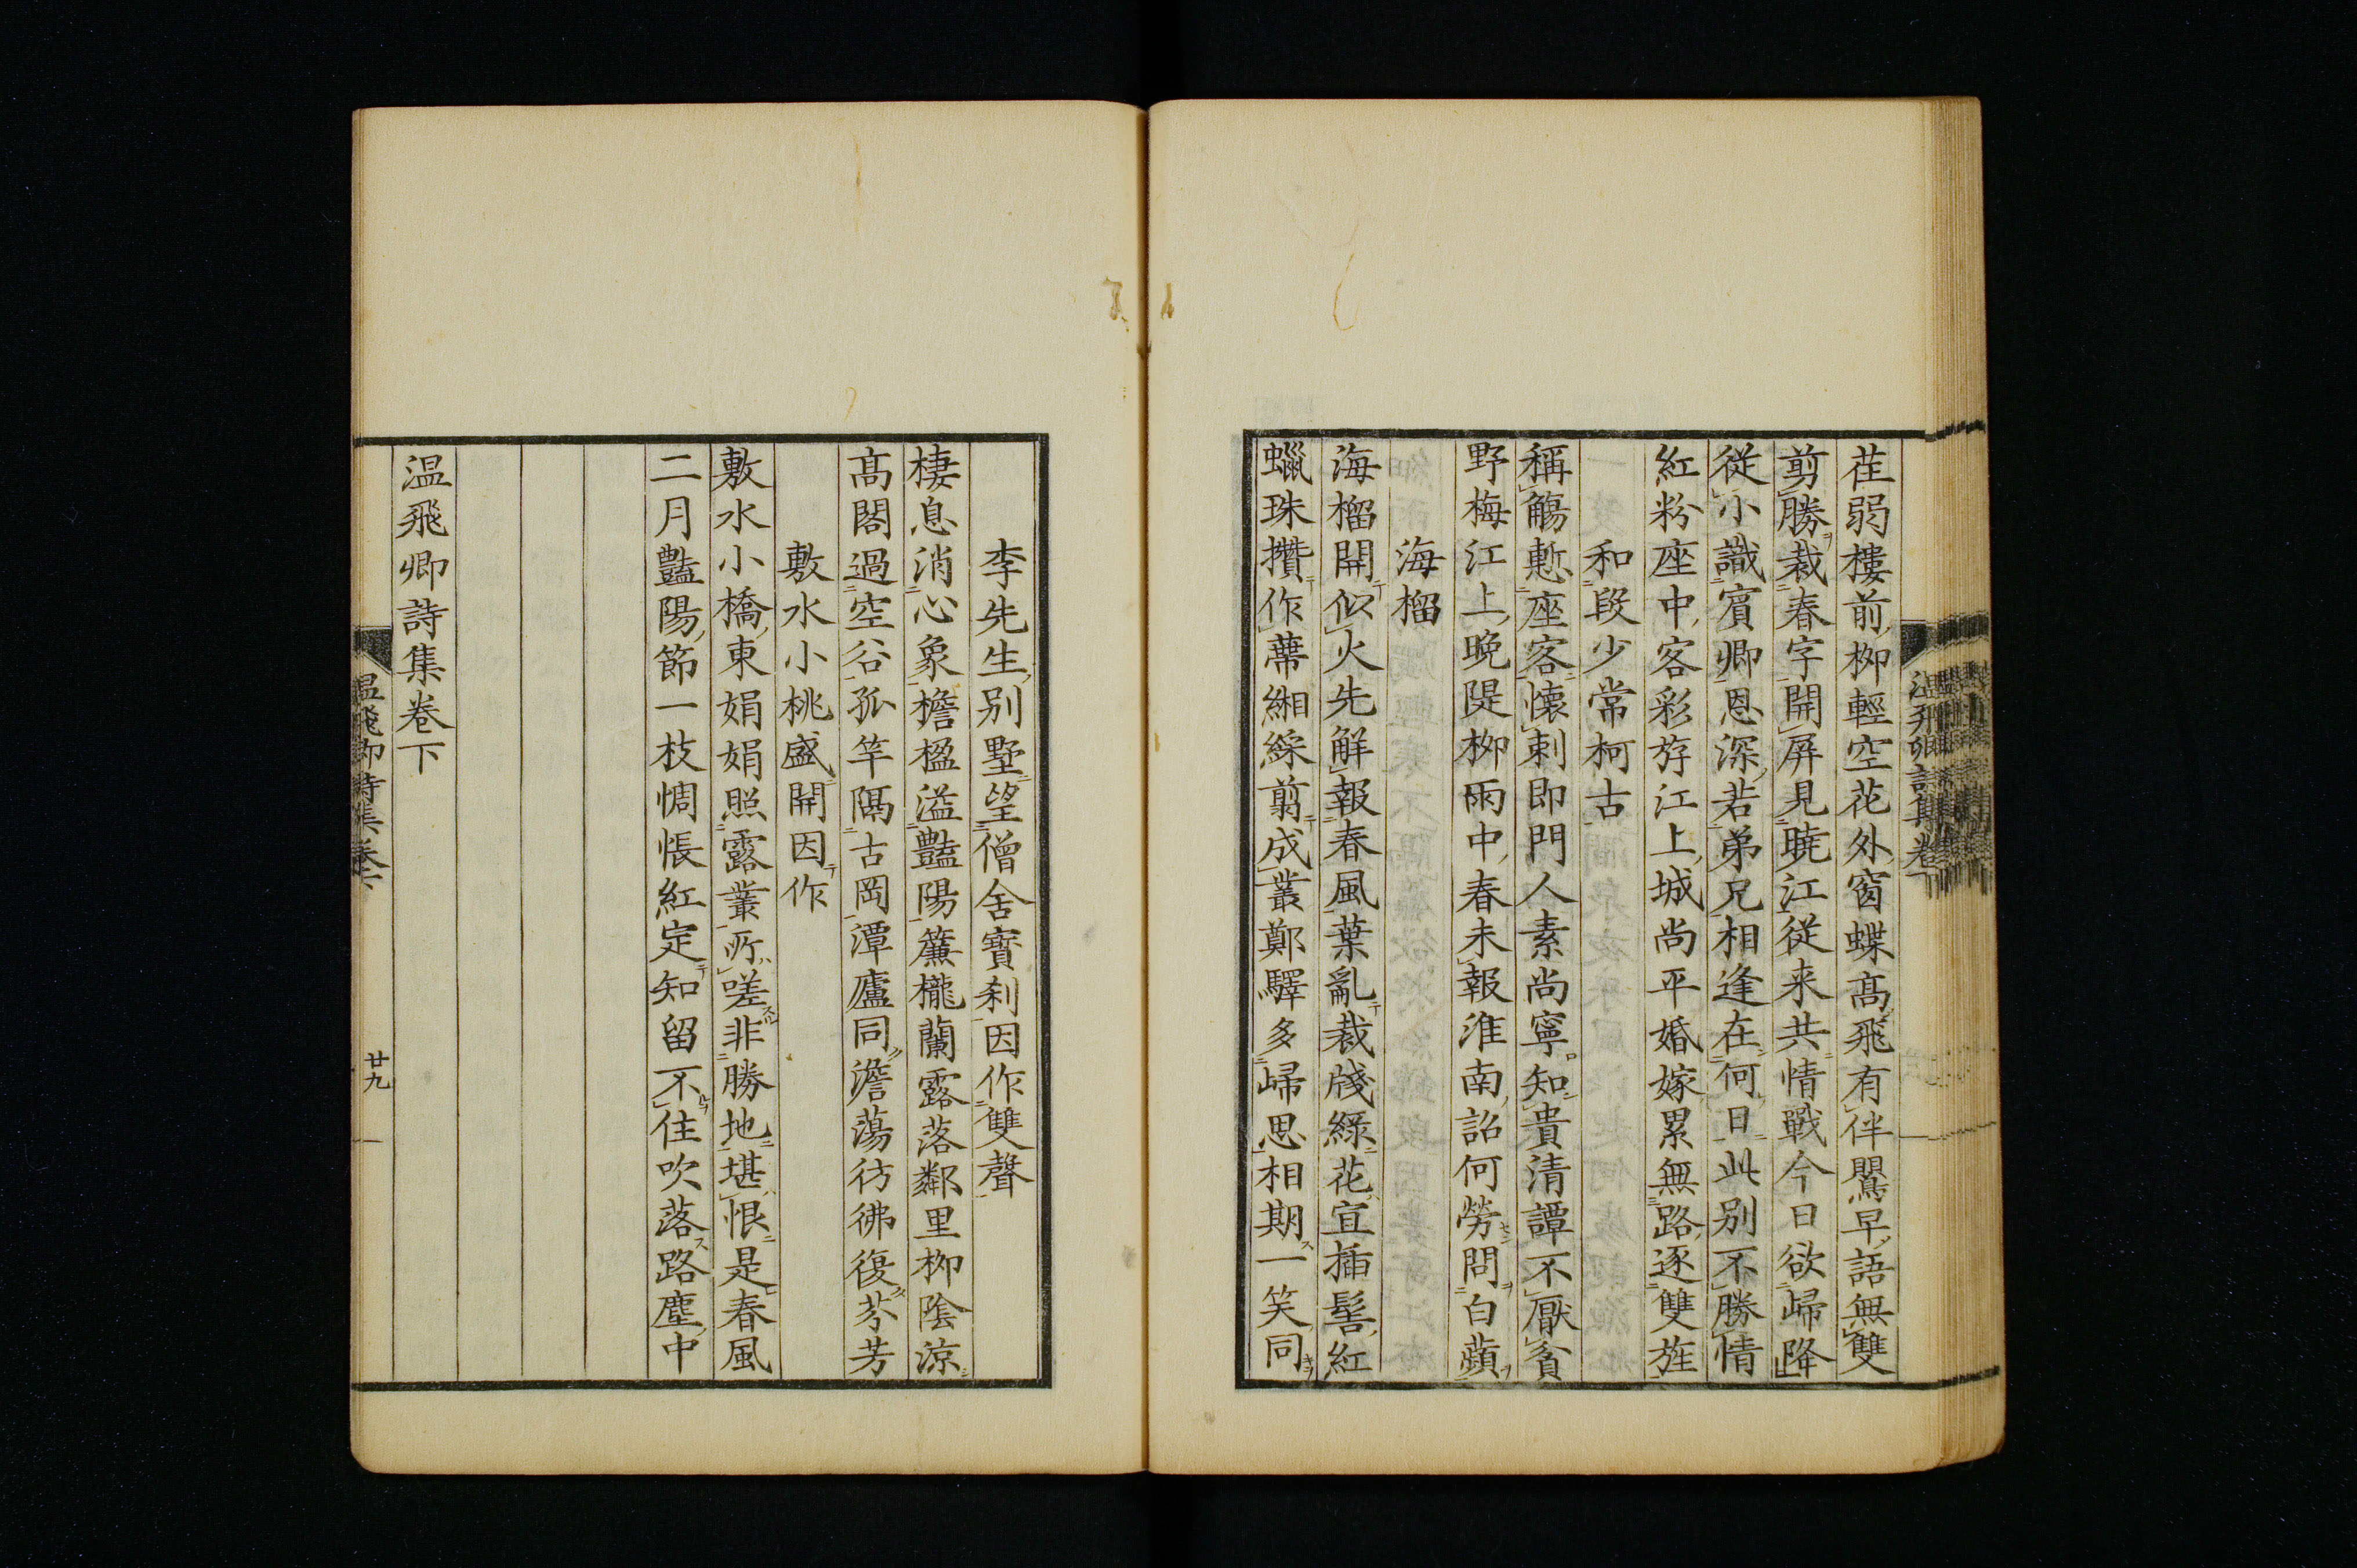 荏弱樓前栁輕空花外窗蝶髙飛有伴鸎早語無雙
剪勝裁春字開屏見曉江從来共情戰今日欲歸降
從小識賓卿恩深若弟兄相逢在何日此别不勝情
紅粉座中客彩斿江上城尚平婚嫁累無路逐雙旌
和段少常柯古
稱觴慙座客懐刺即門人素尚寧知貴清譚不厭貧
野梅江上晩隄栁雨中春未報淮南詔何勞問白蘋
海榴
海榴開似火先觧報春風葉亂裁牋綠花宜插髻紅
蠟珠攢作蔕緗綵剪成叢鄭驛多歸思相期一笑同
李先生别墅望僧舍寳刹因作雙聲
棲息消心象檐楹溢豔陽簾櫳蘭露落鄰里栁隂涼
髙閣過空谷孤竿隔古岡潭廬同澹蕩彷彿復芬芳
敷水小桃盛開因作
敷水小橋東娟娟照露叢所嗟非勝地堪恨是春風
二月豔陽節一枝惆悵紅定知留不住吹落路塵中
温飛卿詩集卷下
温飛卿詩集卷下
廿九